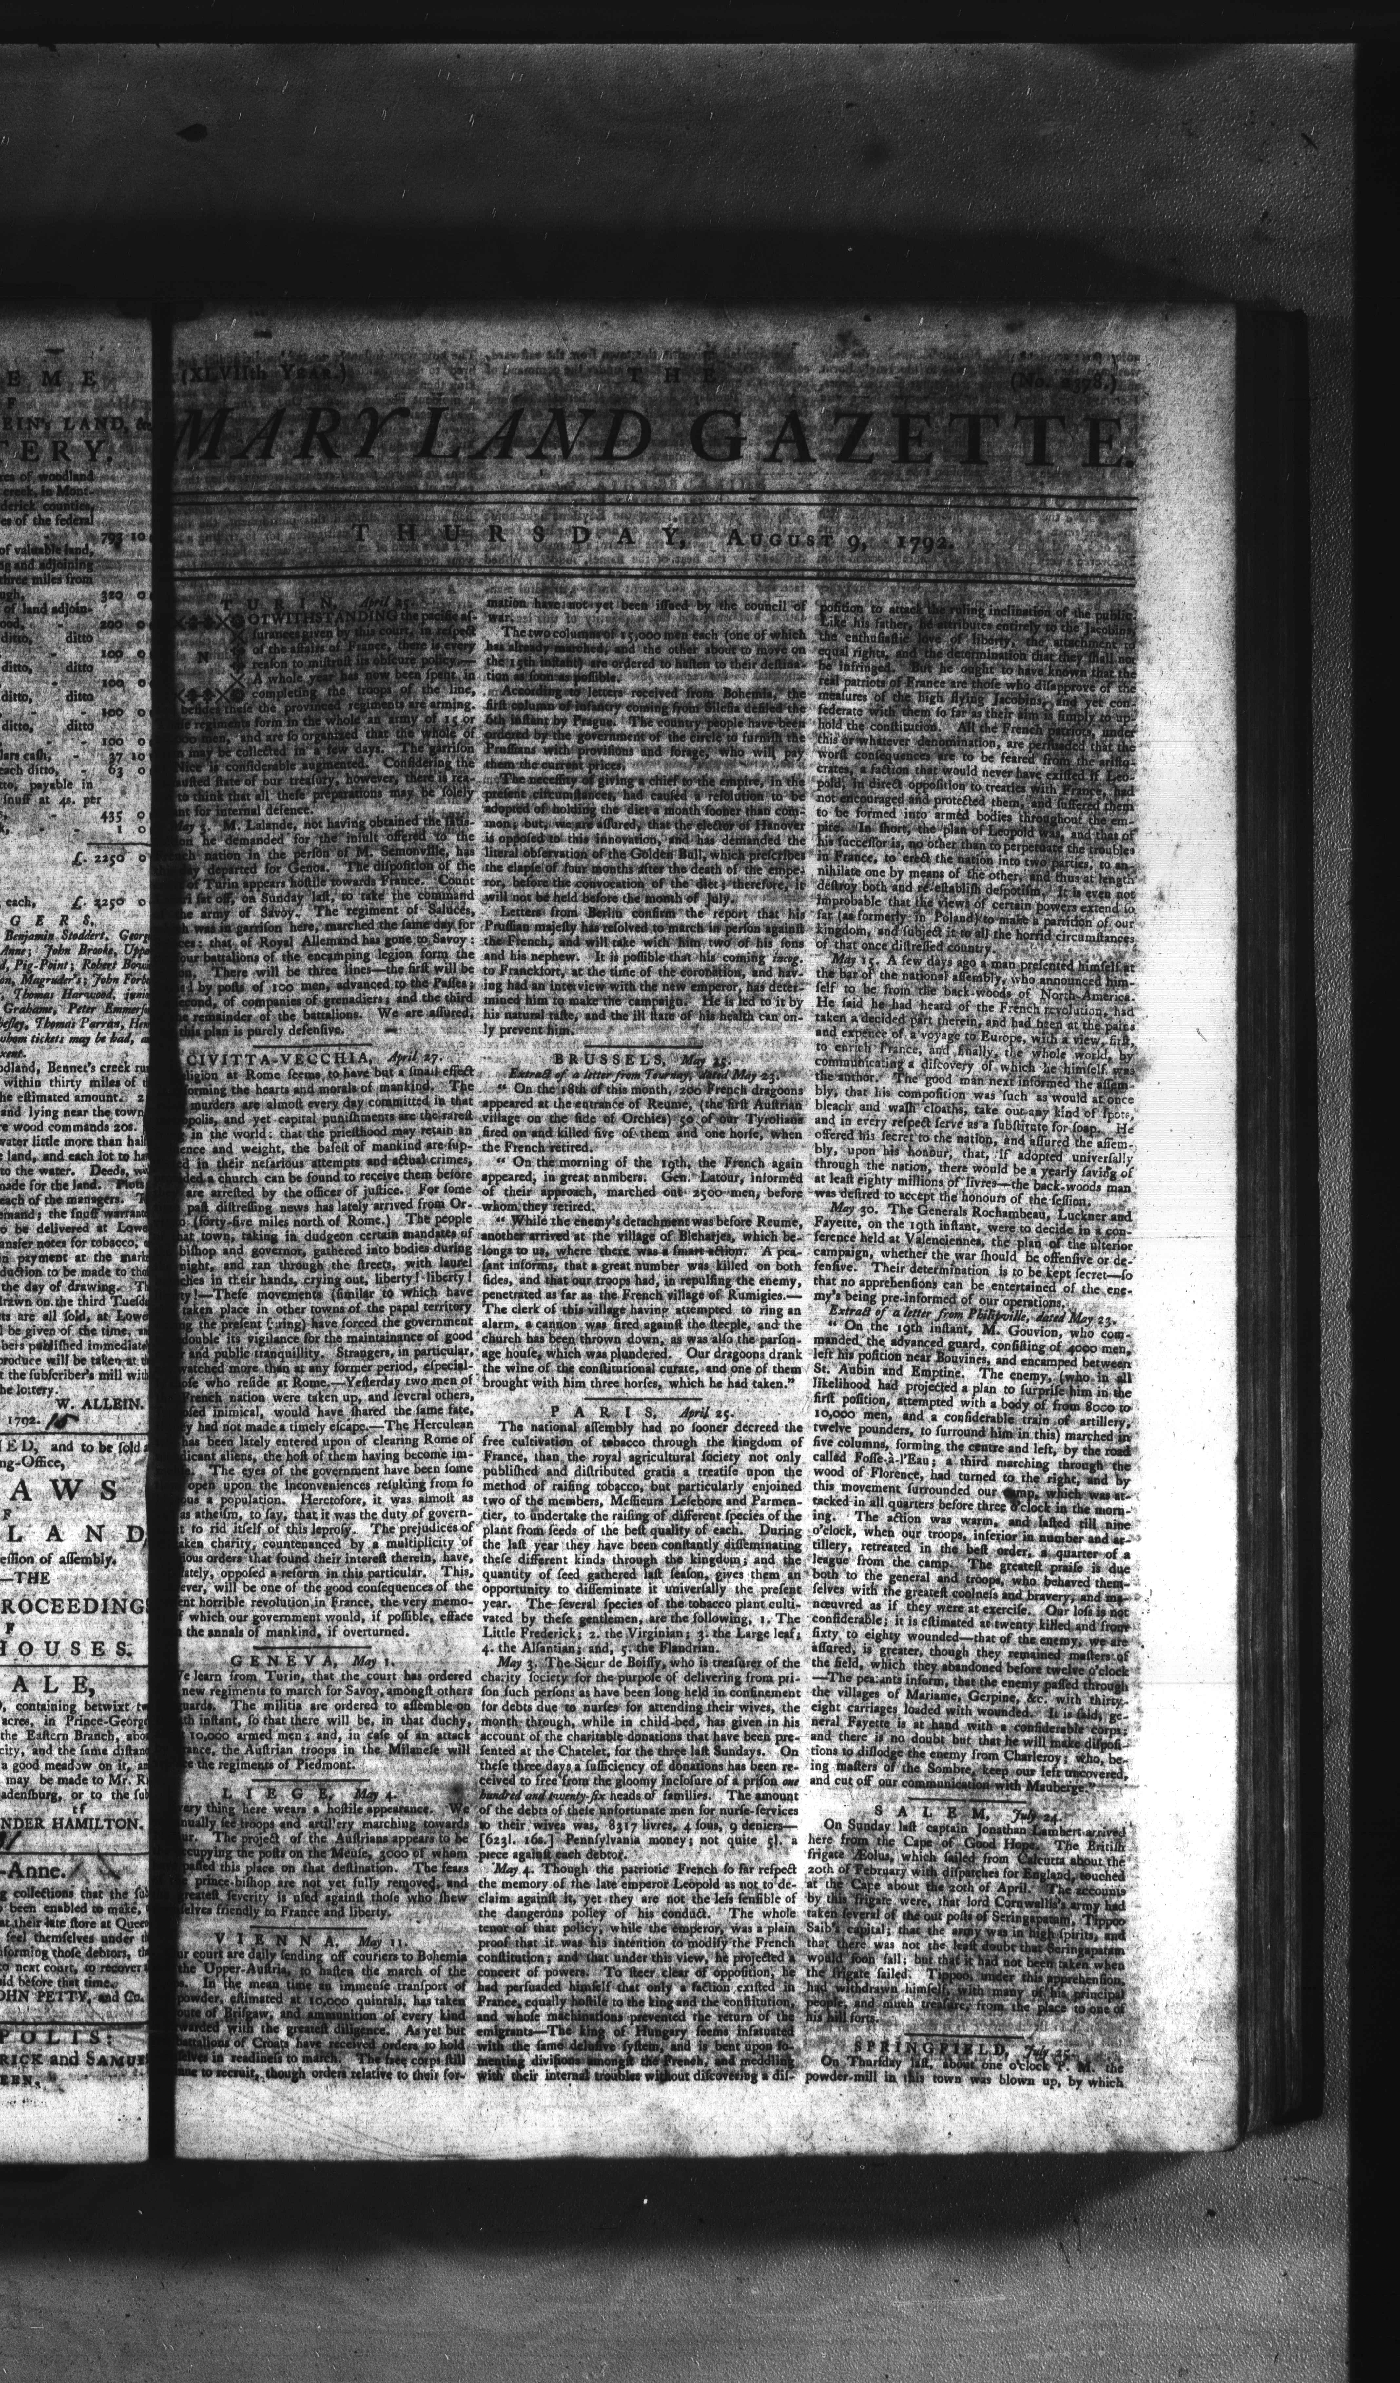 E M E
F
EIN's LAND, &
TERY.
res of woodland
creek, in Mont-
derick counties,
es of the federal
793 10
of valuable land,
ng and adjoining
three miles from
ugh, 320 0
of land adjoin-
ood, - 200 0
ditto, ditto
100 0
ditto, ditto
100 0
ditto, ditto
100 0
ditto, ditto
100 0
lars cash, - 37 10
each ditto, - 63 0
tto, payable in
snuff at 4s. per
435 0
1 0
£. 2250 0
each, £. 2250 0
G E R S,
Benjamin Stoddert, George
Anne; John Brooke, Upper
d, Pig-Point; Robert Bowie
on, Magruder's; John Forbe
Thomas Harwood, junior
Grahame, Peter Emmerson
Thomas Parran, Hen
whom tickets may be had, a
odland, Bennet's creek run
within thirty miles of t
he estimated amount. 2
and lying near the town
re wood commands 20s.
water little more than half
e land, and each lot to ha
to the water. Deeds, wi
made for the land. Plots
each of the managers. T
emand; the snuff warrant
o be delivered at Lowe
ansfer notes for tobacco,
n payment at the mark
duction to be made to tho
the day of drawing. Th
drawn on the third Tuesda
ts are all sold, at Lowe
l be given of the time, an
bers published immediate
produce will be taken at th
t the subscriber's mill with
he lottery.
W. ALLEIN.
1792. 15
IED, and to be sold a
ng-Office,
A W S
F
L A N D,
ession of assembly.
—THE
ROCEEDINGS
F
HOUSES.
A L E,
containing betwixt tw
acres, in Prince-George
the Eastern Branch, abou
city, and the same distanc
a good meadow on it, an
may be made to Mr. R
adensburg, or to the sub
tf
NDER HAMILTON.
-Anne.
g collections that the sub
been enabled to make,
at their late store at Queen
feel themselves under th
nforming those debtors, tha
o next court, to recover t
id before that time.
OHN PETTY, and Co.
P O L I S:
RICK and SAMUE
EEN.
(XLVIIth YEAR.) T H E (No. 2378.)
MARYLAND GAZETTE.
T H U R S D A Y, AUGUST 9, 1792.
T U R I N, April 25.
NOTWITHSTANDING the pacific as-
surances given by this court, in respect
of the affairs of France, there is every
reason to mistrust its obscure policy.—
A whole year has now been spent in
completing the troops of the line,
besides these the provincial regiments are arming.
se regiments form in the whole an army of 15 or
000 men, and are so organized that the whole of
n may be collected in a few days. The garrison
Nice is considerable augmented. Considering the
austed state of our treasury, however, there is rea-
to think that all these preparations may be solely
ant for internal defence.
May 5. M. Lalande, not having obtained the satis-
on he demanded for the insult offered to the
nch nation in the person of M. Semonville, has
day departed for Genoa. The disposition of the
of Turin appears hostile towards France. Count
ri set off, on Sunday last, to take the command
he army of Savoy. The regiment of Saluces,
h was in garrison here, marched the same day for
ces: that of Royal Allemand has gone to Savoy:
four battalions of the encamping legion form the
on. There will be three lines—the first will be
ed by posts of 100 men, advanced to the Passes;
second, of companies of grenadiers; and the third
he remainder of the battalions. We are assured,
this plan is purely defensive.
CIVITTA-VECCHIA, April 27.
eligion at Rome seems to have but a small effect
orming the hearts and morals of mankind. The
murders are almost every day committed in that
opolis, and yet capital punishments are the rarest
in the world: that the priesthood may retain an
ence and weight, the basest of mankind are sup-
ed in their nefarious attempts and actual crimes,
ded a church can be found to receive them before
are arrested by the offices of justice. For some
past distressing news has lately arrived from Or-
o (forty-five miles north of Rome.) The people
hat town, taking in dudgeon certain mandates of
bishop and governor, gathered into bodies during
night, and ran through the streets, with laurel
ches in their hands, crying out, liberty! liberty!
ty!—These movements (similar to which have
taken place in other towns of the papal territory
ng the present spring) have forced the government
double its vigilance for the maintainance of good
r and public tranquillity. Strangers, in particular,
watched more than at any former period, especial-
hose who reside at Rome.—Yesterday two men of
French nation were taken up, and several others,
osed inimical, would have shared the same fate,
y had not made a timely escape.—The Herculean
has been lately entered upon of clearing Rome of
dicant aliens, the host of them having become im-
The eyes of the government have been some
open upon the inconveniences resulting from so
ous a population. Heretofore, it was almost as
as atheism, to say, that it was the duty of govern-
t to rid itself of this leprosy. The prejudices of
aken charity, countenanced by a multiplicity of
ious orders that found their interest therein, have,
nately, opposed a reform in this particular. This,
ever, will be one of the good consequences of the
ent horrible revolution in France, the very memo-
f which our government would, if possible, efface
n the annals of mankind, if overturned.
GENEVA, May 1.
We learn from Turin, that the court has ordered
new regiments to march for Savoy, amongst others
uards. The militia are ordered to assemble on
th instant, so that there will be, in that duchy,
10,000 armed men; and, in case of an attack
rance, the Austrian troops in the Milanese will
ce the regiments of Piedmont.
L I E G E, May 4.
very thing here wears a hostile appearance. We
nually see troops and artill'ery marching towards
ur. The project of the Austrians appears to be
ccupying the posts on the Meuse, 2000 of whom
passed this place on that destination. The fears
prince-bishop are not yet fully removed, and
greatest severity is used against those who shew
selves friendly to France and liberty.
V I E N N A, May 11.
ur court are daily sending off couriers to Bohemia
the Upper-Austria, to hasten the march of the
s. In the mean time an immense transport of
powder, estimated at 10,000 quintals, has taken
oute of Brisgaw, and ammunition of every kind
warded with the greatest diligence. As yet but
battalions of Croats have received orders to hold
selves in readiness to march. The free corps still
nue to recruit, though orders relative to their for-
mation have not yet been issued by the council of
war.
The two columns of 15,000 men each (one of which
has already marched, and the other about to move on
the 15th instant) are ordered to hasten to their destina-
tion as soon as possible.
According to letters received from Bohemia, the
first column of infantry coming from Silesia defiled the
6th instant by Prague. The country people have been
ordered by the government of the circle to furnish the
Prussians with provisions and forage, who will pay
them the current prices.
The necessity of giving a chief to the empire, in the
present circumstances, had caused a resolution to be
adopted of holding the diet a month sooner than com-
mon; but, we are assured, that the elector of Hanover
is opposed to this innovation, and has demanded the
literal observation of the Golden Bull, which prescribes
the elapse of four months after the death of the empe-
ror, before the convocation of the diet; therefore, it
will not be held before the month of July.
Letters from Berlin confirm the report that his
Prussian majesty has resolved to march in person against
the French, and will take with him two of his sons
and his nephew. It is possible that his coming incog.
to Franckfort, at the time of the coronation, and hav-
ing had an interview with the new emperor, has deter-
mined him to make the campaign. He is led to it by
his natural taste, and the ill state of his health can on-
ly prevent him.
BRUSSELS, May 25.
Extract of a letter from Tournay, dated May 23.
" On the 18th of this month, 200 French dragoons
appeared at the entrance of Reume, (the first Austrian
village on the side of Orchies) 50 of our Tyrolians
fired on and killed five of them and one horse, when
the French retired.
" On the morning of the 19th, the French again
appeared, in great nnmbers. Gen. Latour, informed
of their approach, marched out 2500 men, before
whom they retired.
" While the enemy's detachment was before Reume,
another arrived at the village of Bleharjes, which be-
longs to us, where there was a smart action. A pea-
sant informs, that a great number was killed on both
sides, and that our troops had, in repulsing the enemy,
penetrated as far as the French village of Rumigies.—
The clerk of this village having attempted to ring an
alarm, a cannon was fired against the steeple, and the
church has been thrown down, as was also the parson-
age house, which was plundered. Our dragoons drank
the wine of the constitutional curate, and one of them
brought with him three horses, which he had taken."
P A R I S, April 25.
The national assembly had no sooner decreed the
free cultivation of tobacco through the kingdom of
France, than the royal agricultural society not only
published and distributed gratis a treatise upon the
method of raising tobacco, but particularly enjoined
two of the members, Messieurs Lefebore and Parmen-
tier, to undertake the raising of different species of the
plant from seeds of the best quality of each. During
the last year they have been constantly disseminating
these different kinds through the kingdom; and the
quantity of seed gathered last season, gives them an
opportunity to disseminate it universally the present
year. The several species of the tobacco plant culti-
vated by these gentlemen, are the following, 1. The
Little Frederick; 2. the Virginian; 3. the Large leaf;
4. the Alsantian; and, 5. the Flandrian.
May 3. The Sieur de Boissy, who is treasurer of the
charity society for the purpose of delivering from pri-
son such persons as have been long held in confinement
for debts due to nurses for attending their wives, the
month through, while in child-bed, has given in his
account of the charitable donations that have been pre-
sented at the Chatelet, for the three last Sundays. On
these three days a sufficiency of donations has been re-
ceived to free from the gloomy inclosure of a prison one
hundred and twenty-six heads of families. The amount
of the debts of these unfortunate men for nurse-services
to their wives was, 8317 livres, 4 sous, 9 deniers—
[623l. 16s.] Pennsylvania money; not quite 5l. a
piece against each debtor.
May 4. Though the patriotic French so far respect
the memory of the late emperor Leopold as not to de-
claim against it, yet they are not the less sensible of
the dangerous policy of his conduct. The whole
tenor of that policy, while the emperor, was a plain
proof that it was his intention to modify the French
constitution; and that under this view, he projected a
concert of powers. To steer clear of opposition, he
had persuaded himself that only a faction existed in
France, equally hostile to the king and the constitution,
and whose machinations prevented the return of the
emigrants—The king of Hungary seems infatuated
with the same delusive system, and is bent upon fo-
menting divisions amongst the French, and meddling
with their internal troubles without discovering a dis-
position to attack the ruling inclination of the public.
Like his father, he attributes entirely to the Jacobins,
the enthusiastic love of liberty, the attachment to
equal rights, and the determination that they shall not
be infringed. But he ought to have known that the
real patriots of France are those who disapprove of the
measures of the high flying Jacobins, and yet con-
federate with them so far as their aim is simply to up-
hold the constitution. All the French patriots, under
this or whatever denomination, are persuaded that the
worst consequences are to be feared from the aristo-
crates, a faction that would never have existed if Leo-
pold, in direct opposition to treaties with France, had
not encouraged and protected them, and suffered them
to be formed into armed bodies throughout the em-
pire. In short, the plan of Leopold was, and that of
his successor is, no other than to perpetuate the troubles
in France, to erect the nation into two parties, to an-
nihilate one by means of the other, and thus at length
destroy both and re-establish despotism. It is even not
improbable that the views of certain powers extend so
far (as formerly in Poland) to make a partition of our
kingdom, and subject it to all the horrid circumstances
of that once distressed country.
May 15. A few days ago a man presented himself at
the bar of the national assembly, who announced him-
self to be from the back-woods of North-America.
He said he had heard of the French revolution, had
taken a decided part therein, and had been at the pains
and expence of a voyage to Europe, with a view, first,
to enrich France, and finally, the whole world, by
communicating a discovery of which he himself was
the author. The good man next informed the assem-
bly, that his composition was such as would at once
bleach and wash cloaths, take out any kind of spots,
and in every respect serve as a substitute for soap. He
offered his secret to the nation, and assured the assem-
bly, upon his honour, that, if adopted universally
through the nation, there would be a yearly saving of
at least eighty millions of livres—the back-woods man
was desired to accept the honours of the session.
May 30. The Generals Rochambeau, Luckner and
Fayette, on the 19th instant, were to decide in a con-
ference held at Valenciennes, the plan of the ulterior
campaign, whether the war should be offensive or de-
fensive. Their determination is to be kept secret—so
that no apprehensions can be entertained of the ene-
my's being pre-informed of our operations.
Extract of a letter from Philipville, dated May 23.
" On the 19th instant, M. Gouvion, who com-
manded the advanced guard, consisting of 4000 men,
left his position near Bouvines, and encamped between
St. Aubin and Emptine. The enemy, (who in all
likelihood had projected a plan to surprise him in the
first position, attempted with a body of from 8000 to
10,000 men, and a considerable train of artillery,
twelve pounders, to surround him in this) marched in
five columns, forming the centre and left, by the road
called Fosse-à-l'Eau; a third marching through the
wood of Florence, had turned to the right, and by
this movement surrounded our camp, which was at-
tacked in all quarters before three o'clock in the morn-
ing. The action was warm, and lasted till nine
o'clock, when our troops, inferior in number and ar-
tillery, retreated in the best order, a quarter of a
league from the camp. The greatest praise is due
both to the general and troops, who behaved them-
selves with the greatest coolness and bravery, and ma-
nœuvred as if they were at exercise. Our loss is not
considerable; it is estimated at twenty killed and from
sixty to eighty wounded—that of the enemy, we are
assured, is greater, though they remained masters of
the field, which they abandoned before twelve o'clock
—The peasants inform, that the enemy passed through
the villages of Mariame, Gerpine, &c. with thirty-
eight carriages loaded with wounded. It is said, ge-
neral Fayette is at hand with a considerable corps;
and there is no doubt but that he will make disposi-
tions to dislodge the enemy from Charleroy; who, be-
ing masters of the Sombre, keep our left uncovered,
and cut off our communication with Mauberge."
S A L E M, July 24.
On Sunday last captain Jonathan Lambert arrived
here from the Cape of Good Hope. The British
frigate Æolus, which sailed from Calcutta about the
20th of February with dispatches for England, touched
at the Cape about the 20th of April. The accounts
by this frigate were, that lord Cornwallis's army had
taken several of the out posts of Seringapatam, Tippoo
Saib's capital; that the army was in high spirits, and
that there was not the least doubt that Seringapatam
would soon fall; but that it had not been taken when
the frigate sailed. Tippoo, under this apprehension,
had withdrawn himself, with many of his principal
people, and much treasure, from the place to one of
his hill forts.
SPRINGFIELD, July 25.
On Thursday last, about one o'clock P. M. the
powder-mill in this town was blown up, by which